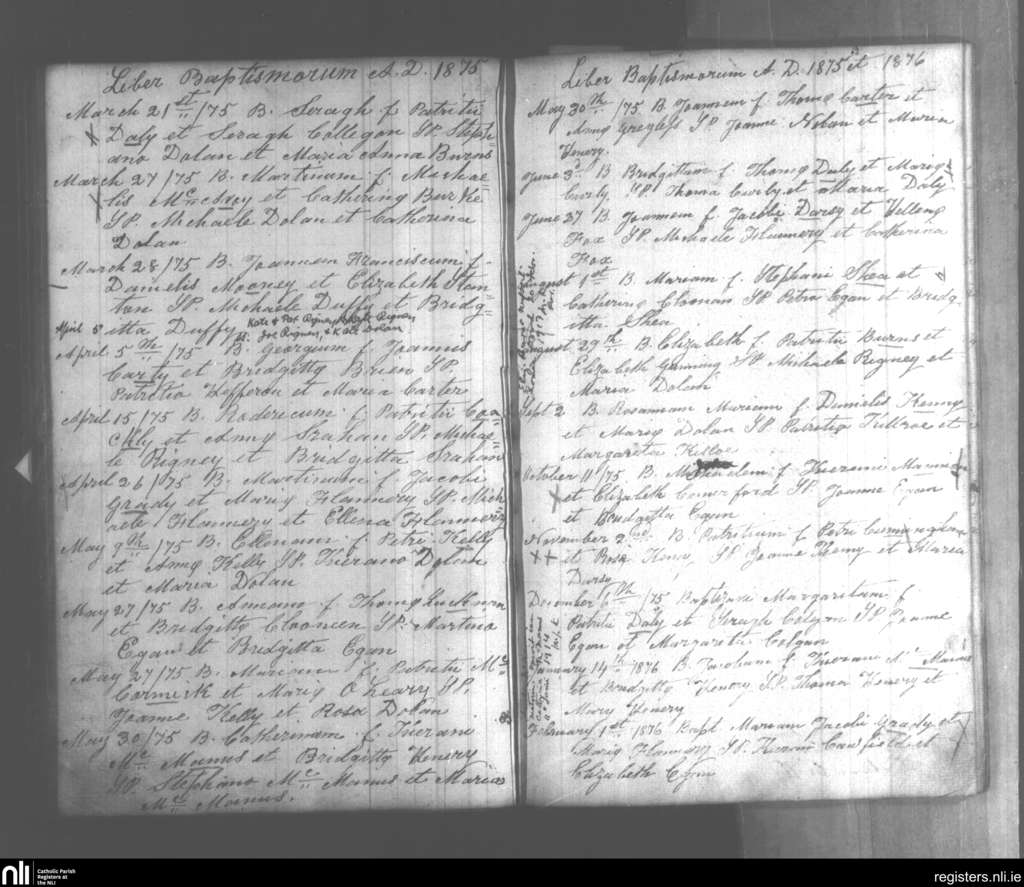 Liber Baptismorum A. D. 1875
March 21st /75 B. Seragh f. Patritii
Daly et Seragh Colligon SP. Steph=
ano Dolan et Maria Anna Burns
March 27 /75 B. Martinum f. Michae=
lis McEvoy et Catherine Burke
SP. Michaele Dolan et Catherina
Dolan
March 28/75 B. Joannem Franciscum f.
Danielis Mooney et Elizabeth Stan=
ton SP. Michaele Duffy et Bridg=
itta Duffy
April 5th /75 B. Georgium f. Joannis
Carty et Bridgitta SP.
Patritio Hefferon et Maria Carter
April 15/75 B. Rodericum f. Patritii Coa=
kly et Anny Grahan SP. Michae=
le Rigney et Bridgitta Grahan
April 26 /75 B. Martinum f. Jacobi
Grady et Mariy Flannery SP. Mich
aele Flannery et Ellena Flannery
May 9th /75 B. Ellenam f. Petri Kelly
et Anny Kelly SP. Kierano Dolan
et Maria Dolan
May 27/75 B. Annam f. Thomy
et Bridgitty Clooneen SP. Martino
Egan et Bridgitta Egan
May 27/75 B. Mariam f. Patritii Mc
Cormick et Mariy O'Leary SP.
Joanne Kelly et Rosa Dolan
May 30/75 B. Catherinam f. Kierani
Mc Manus et Bridgitty Henery
SP. Stephano Mc Manus et Maria
Mc Manus.
Liber Baptismorum A. D. 1875 et 1876
May 30th /75 B. Joannem f. Thomy Carter et
Anny SP Joanne Nolan et Maria
Henery.
June 3d B Bridgittam f. Thomy Daly et Mariy
Curly SP. Thoma Curly et Maria Daly
June 27 B. Joannem f. Jacobi Darcy et Helleny
Fox SP. Michaele Flannery et Catherina
Fox
August 1st B. Mariam f. Stephani Shea et
Catherine Cloonan SP Petro Egan et Bridg=
itta Shea
August 29th B. Elizabeth f. Patritii Burns et
Elizabeth SP Michaele Rigney et
Maria Dolan
Sept 2 B. Rosannam Mariam f. Danielis Kenny
et Mariy Dolan SP Patritio Kilroe et
Margarita Kilroe
October 11/75 B. f. Kierani
et Elizabeth Comerford SP. Joanne Egan
et Bridgitta Egan
November 2nd B. Patritium f. Petri Cunningham
et Rosa Henry, SP Joanne Henry et Maria
Darcy
December 6th /75 Baptizavi Margaritam f
Patritii Daly et Seragh Colgan SP Joanne
Egan et Margarita Colgan
January 14th 1876 B. Jacobum f. Kierani Mc Manus
et Bridgitty Henery SP. Thoma Henery et
Mary Henery
February 1st 1876 Bapt Mariam Jacobi Grady et
Mariy Flannery SP. Kierano Cawfield et
Elizabeth Egan
nli
Catholic Parish
Registers at
the NLI
registers.nli.ie